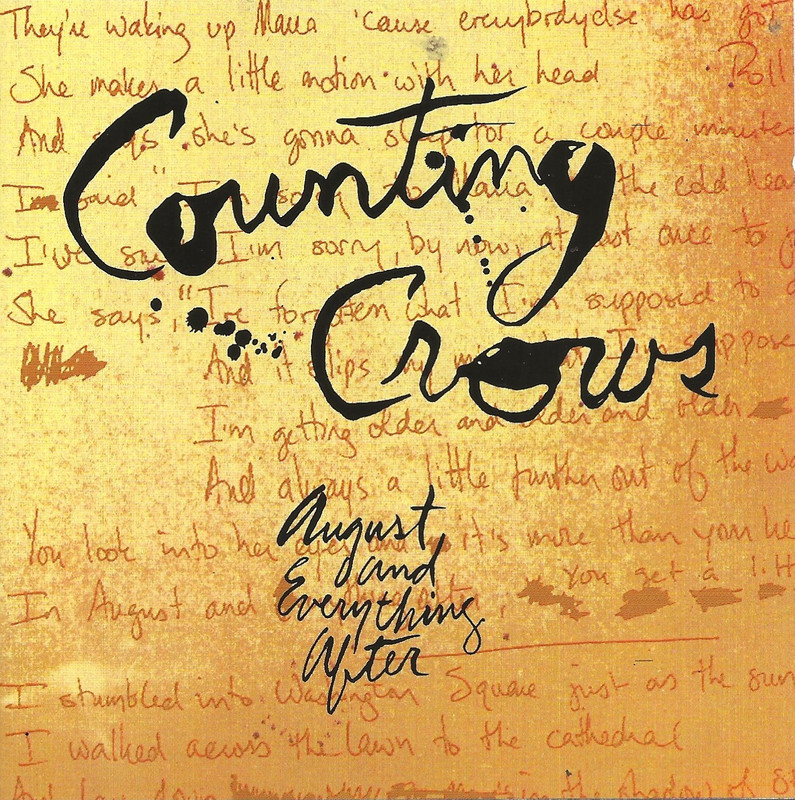 They're waking up Maria 'cause everybody else has got
She makes a little motion with her head Roll
And says she's gonna sleep for a couple minutes
Counting
I said "I'm sorry to Maria the cold hea
I've I'm sorry, by now, at least once to
She says, "I've forgotten what I'm supposed to
Crows
And it slips my I'm suppose
I'm getting older and older and older
And always a little further out of the wa
August
and
Everything
After
You look into her eyes and it's more than your he
In August and After, You get a litt
I stumbled into Washington Square just as the sun
I walked across the lawn to the cathedral
And lay down in the shadow of St